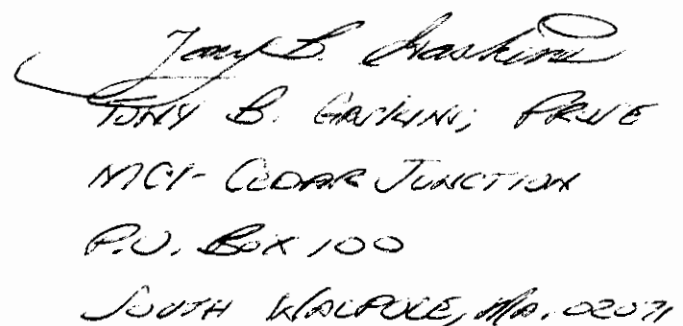 Tony B. Gaskins
TONY B. GASKINS, PRO SE
MCI-CEDAR JUNCTION
P.O. BOX 100
SOUTH WALPOLE, MA. 02071